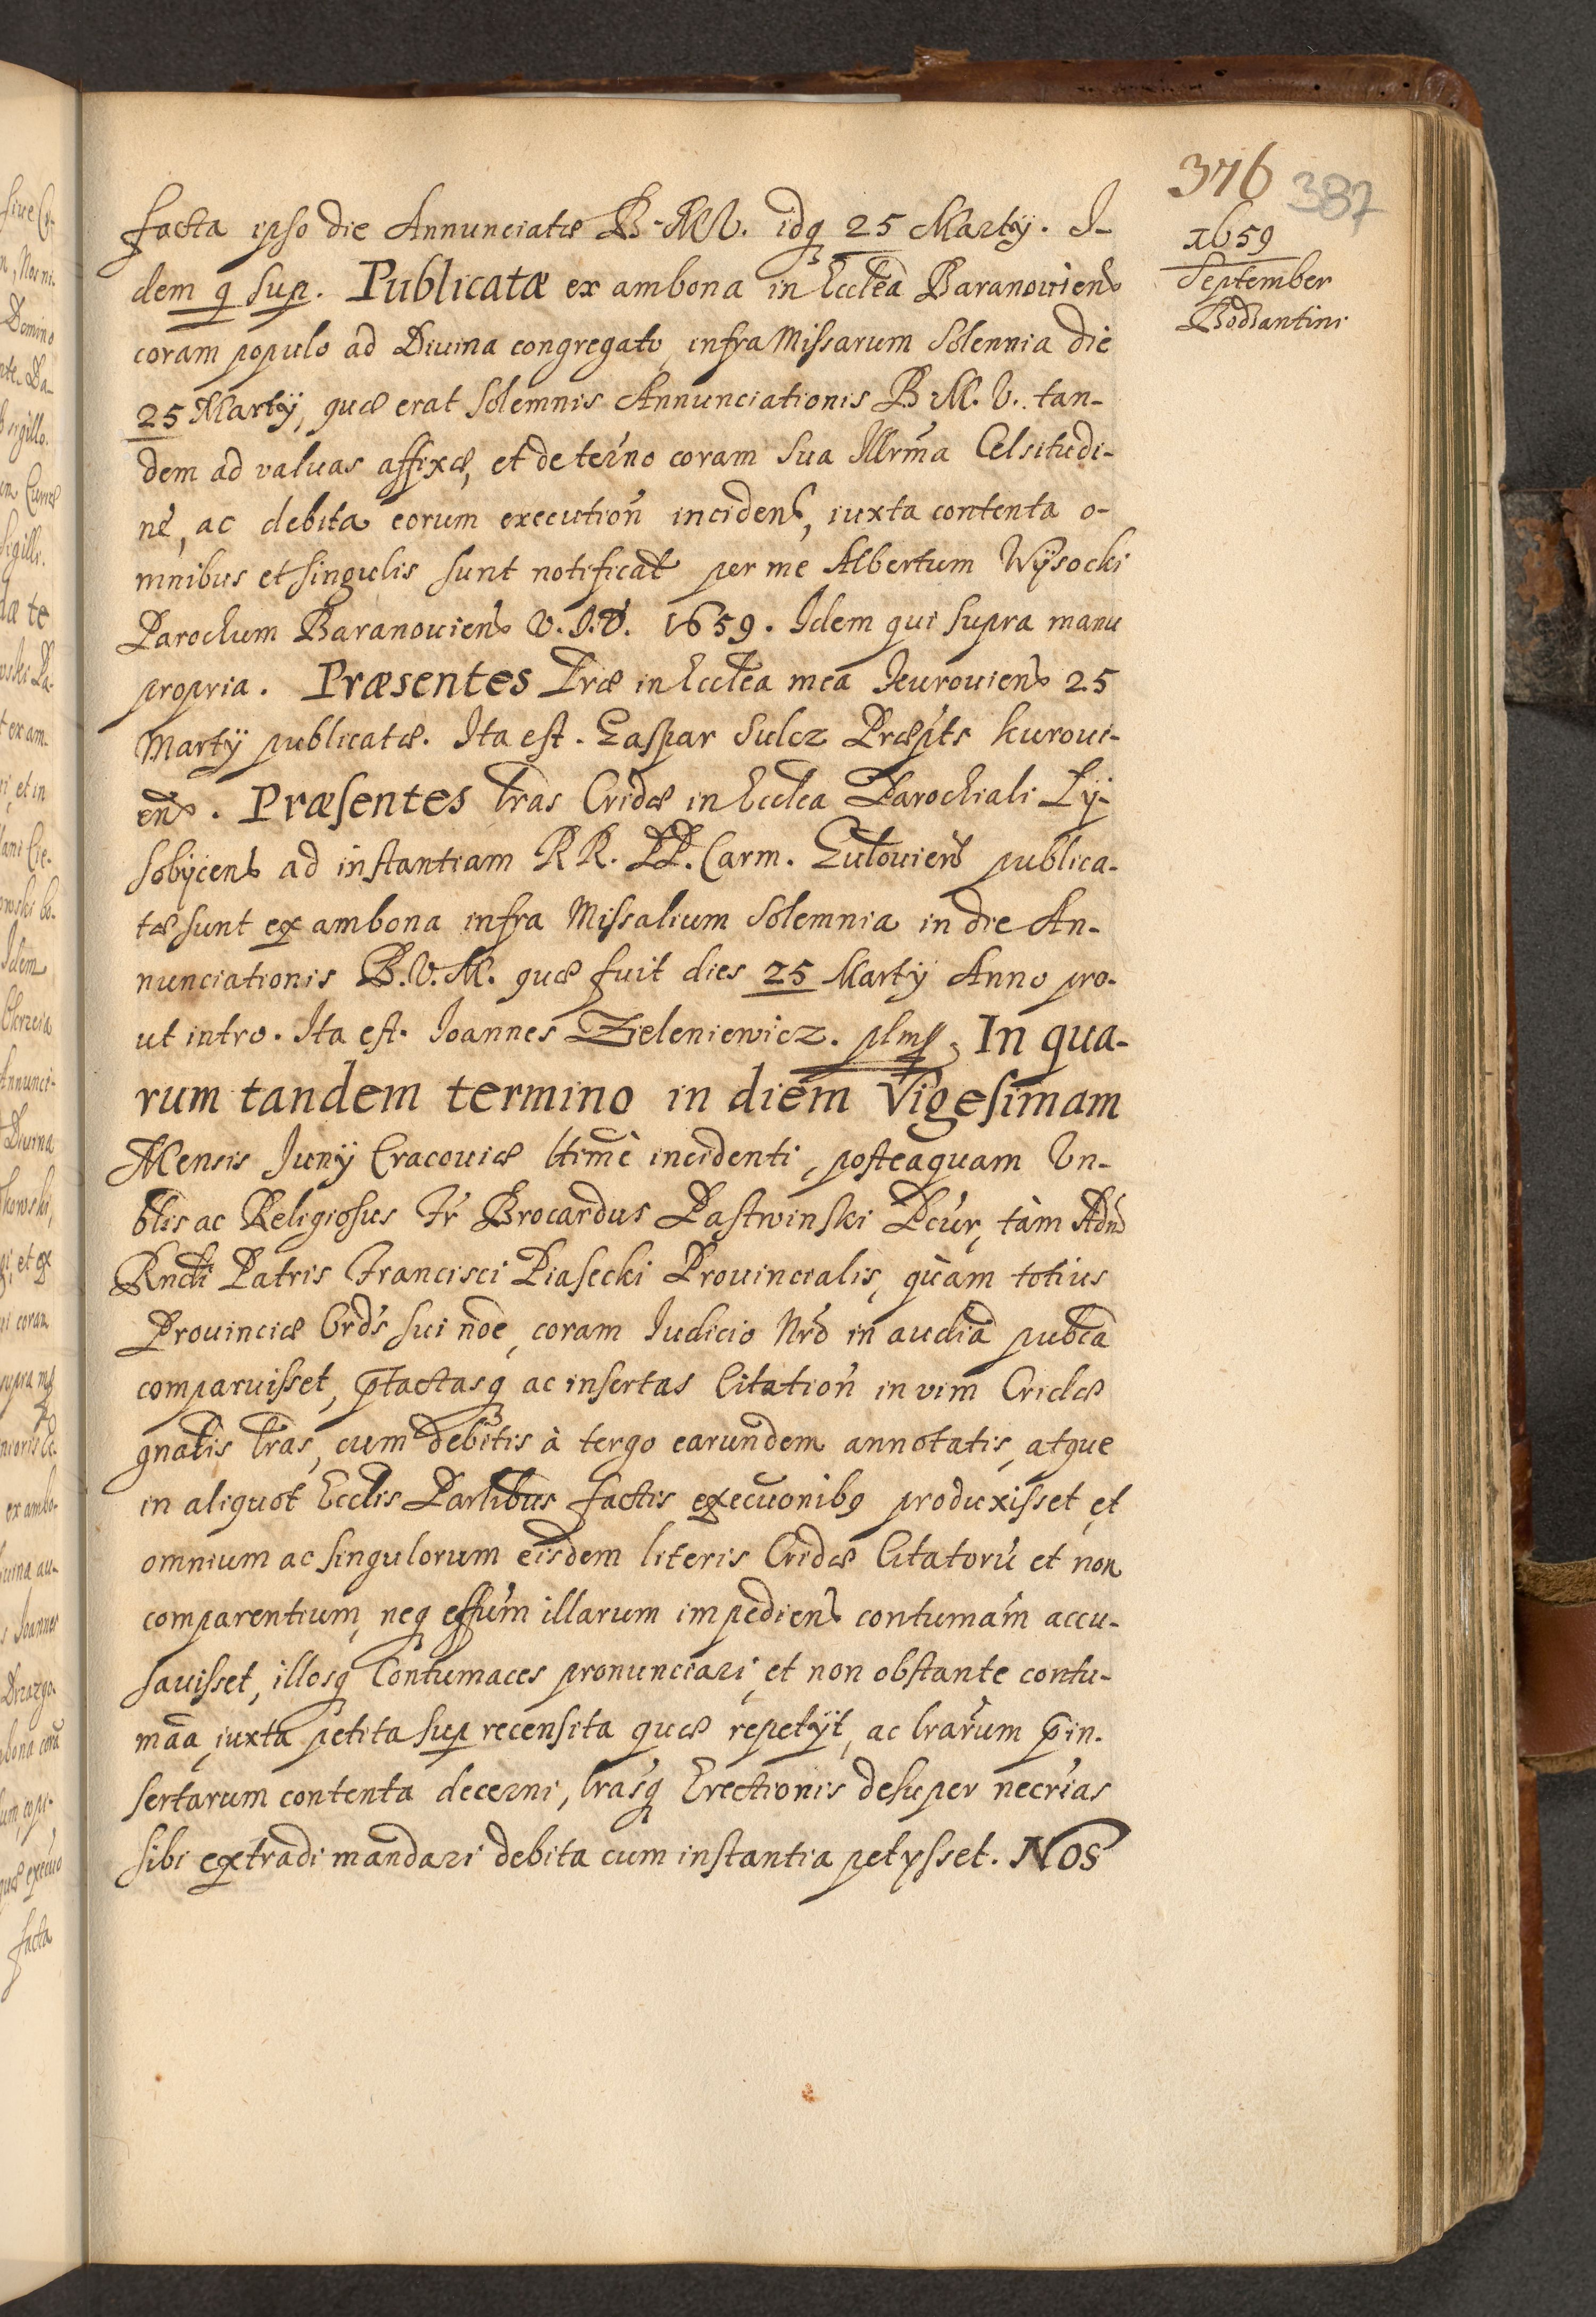 376 387
1659
September
Bodzantini
facta ipso die Annunciatæ B. M. V. idq 25 Martÿ. I-
dem q sup. Publicatæ ex ambona in Eccleã Baranouiens
coram populo ad Diuina congregato, infra Missarum Solennia die
25 Martÿ, quæ erat Solemnis Annunciationis B. M. V. tan-
dem ad valuas affixæ, et de terno coram Sua Illrma Celsitudi-
ne, ac debita eorum execution incidens, iuxta contenta o-
mnibus et singulis sunt notificat per me Albertum Wÿsocki
Parochum Baranouiens V. I. D. 1659. Idem qui supra manu
propria. Præsentes Lræ in Ecclea mea Kurouiens 25
Martÿ publicatæ. Ita est. Gaspar Sulcz Præpts Kuroui-
ens. Præsentes lras Cridæ in Ecclea Parochiali Lÿ-
sobÿcens ad instantiam RR. PP. Carm. publica-
tæ sunt ex ambona infra Missalium Solemnia in die An-
nunciationis B. V. M. quæ fuit dies 25 Martÿ Anno pro-
ut intro. Ita est. Ioannes Zieleniewicz. In qua-
rum tandem termino in diem Vigesimam
Mensis Iunÿ Cracouiæ ltime incidenti, posteaquam Vn-
blis ac Religiosus Fr Brocardus Pastwinski Pcur, tàm Adm
Rndi Patris Francisci Piasecki Prouincialis, quàm totius
Prouinciæ Ords sui noe, coram Iudicio Nro in audiã pubcã
comparuisset, p̃tactasq ac insertas Citation in vim Cridæ
gnalis lras, cum debitis à tergo earundem annotatis, atque
in aliquot Ecclis Parlibus factis execuonibq produxisset, et
omnium ac singulorum eisdem literis Cridæ Citatorũ et non
comparentium, neq effum illarum impediens contumam accu-
sauisset, illosq Contumaces pronunciari, et non obstante contu-
mãa, iuxta petita sup recensita quæ repetÿt, ac lrarum p̃in-
sertarum contenta decerni, lrasq Erectionis desuper necrias
sibi extradi mandari debita cum instantia petysset. Nos